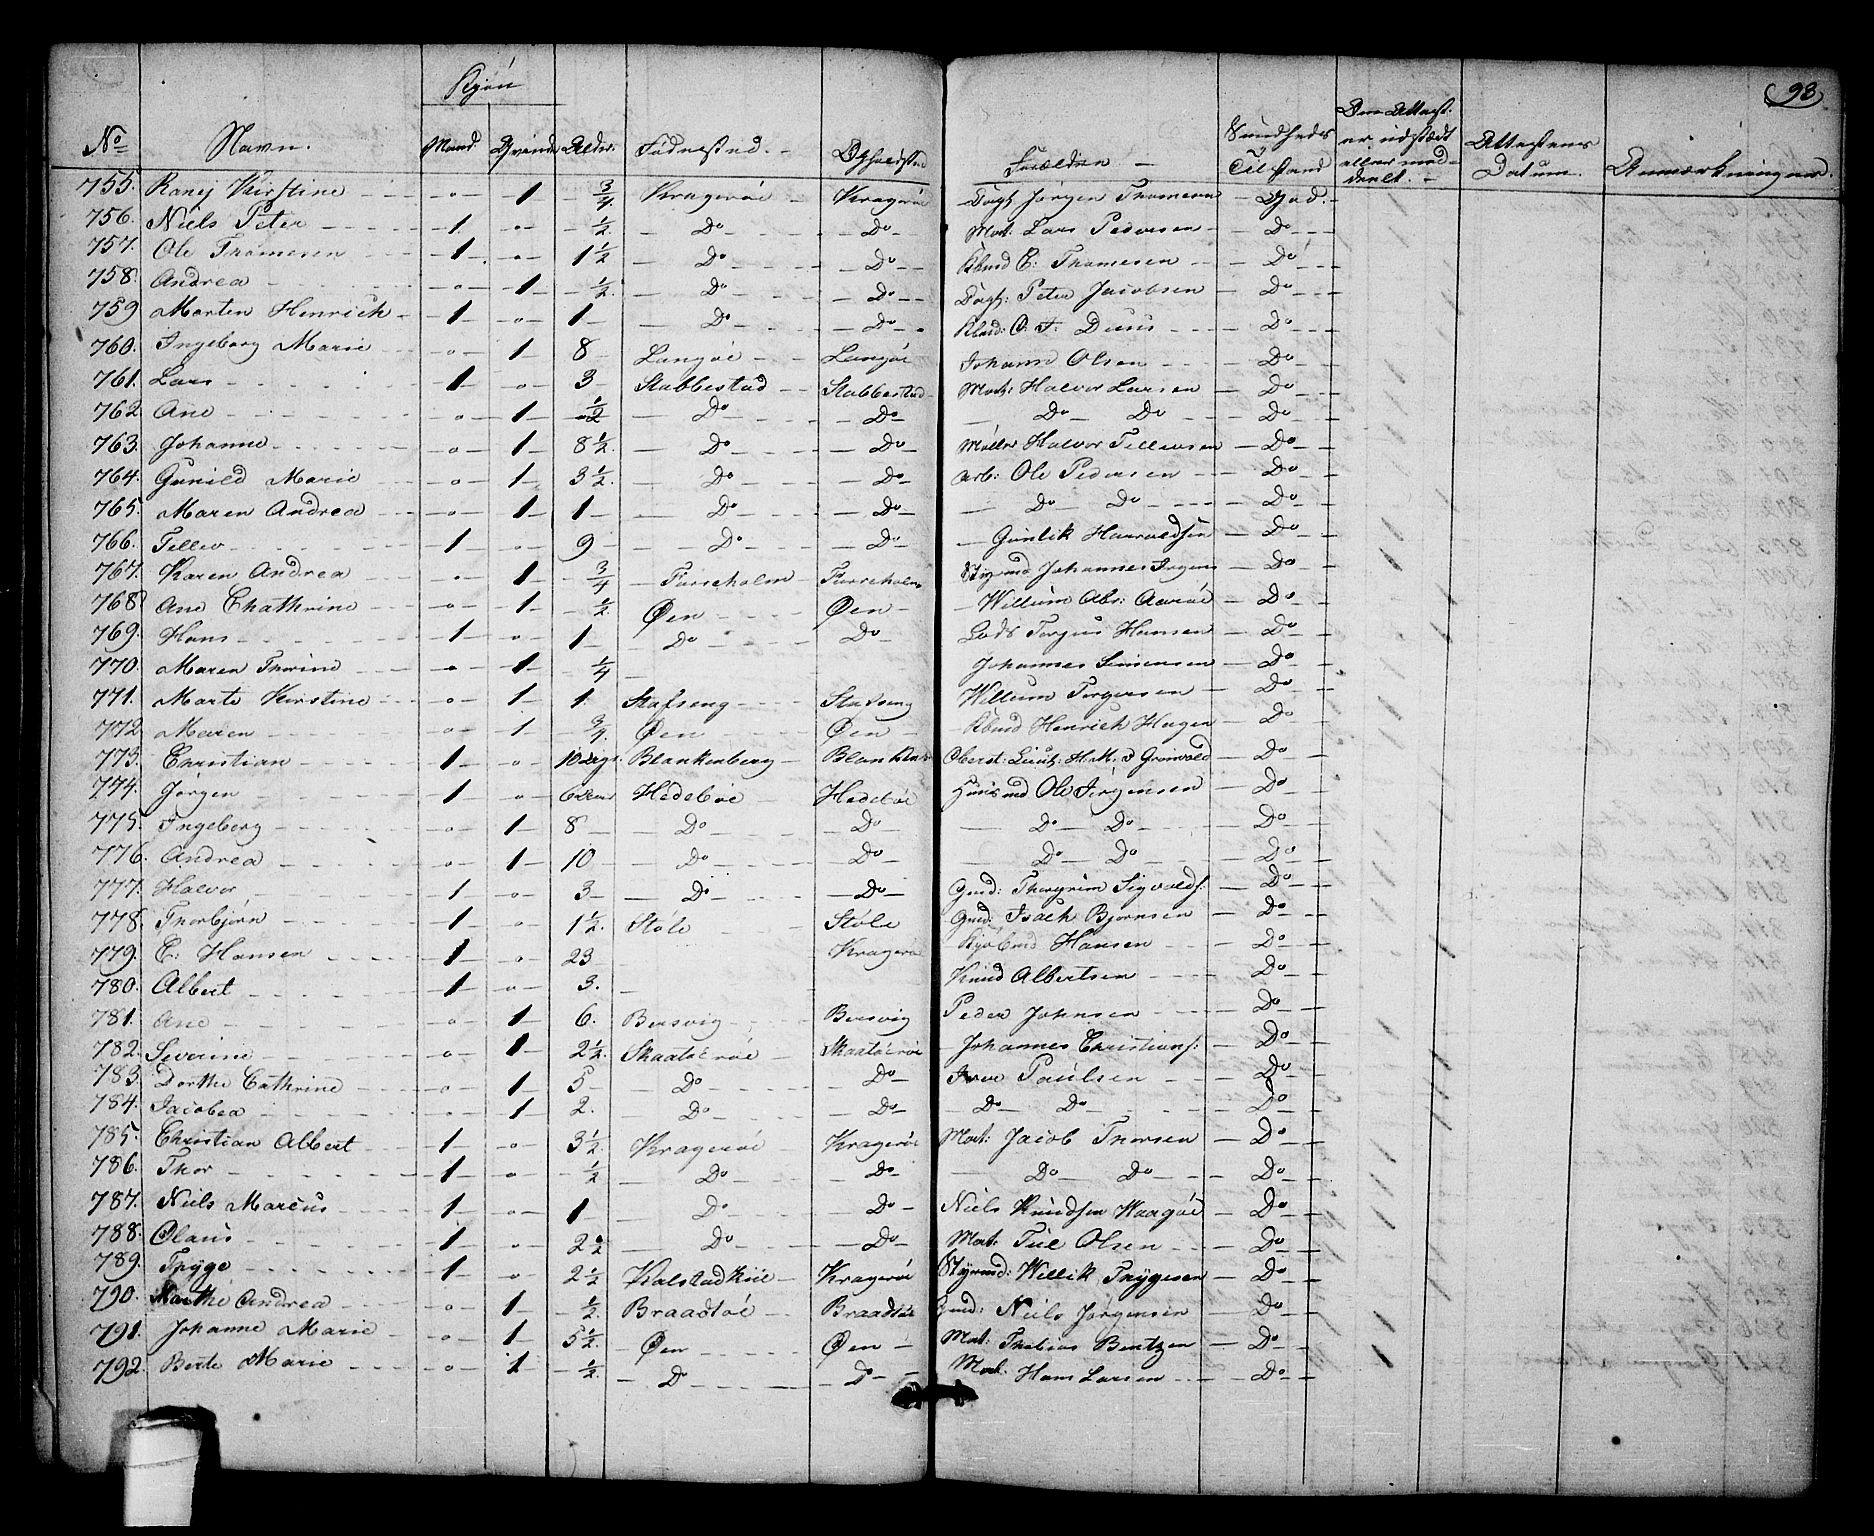 98
Kjøn
No Navn. Mand Qvinde Alder. Fødested. Opholdsted Forældre Sundheds Tilstand Om Attest er udstædt eller meddeelt. Attestens Datum. Anmærkninger.
755. Kirstine o 1 3/4 Kragerøe Kragerøe Jørgen Thomesen God. 1
756. Niels Peter 1 o 1/2 Do Do Mat: Lars Pedersen Do 1
757. Ole Thomesen 1 o 1 1/2 Do Do Kbmd E: Thomesen Do
758. Andrea o 1 1/2. Do Do Peter Jacobsen Do 1
759 Morten Henrich 1 o 1 Do Do Do
760. Ingeborg Marie o 1 8 Langøe Langøe Johanns Olsen Do
761. Lars 1 o 3 Stabbestad Stabbestad Mat: Halvor Larsen Do 1
762. Ane o 1 1/2 Do Do Do Do Do
763. Johanne o 1 8 1/2. Do Do Møller Halvor Tellevsen Do
764. Gunild Marie o 1 3 1/2. Do Do arb: Ole Pedersen Do
765. Maren Andrea o 1 1 Do Do Do Do Do
766. Tellev 1 o 9 Do Do Gunlik Haaraldsen Do 1
767. Karen Andrea o 1 3/4 Furreholm Furreholm Johannes Do 1
768 Ane Chathrine o 1 1/2 Øen Øen Willum Abr: Aarøe Do
769. Hans 1 o 1 Do Do Lods Torgius Hansen Do
770. Maren Thorine o 1 1/4 Johannes Simensen Do
771. Marte Kirstine o 1 1 Stafseng Stafseng Willum Torgersen Do 1
772 Maren o 1 3/4. Øen Øen Kbmd Henrich Do
773. Christian 1 o 10 Blankenberg Oberst: Lieut: Do
774. Jørgen 1 o 6 Hedebøe Hedebøe Huusmd Ole Jørgensen Do
775. Ingeborg o 1 8 Do Do Do Do Do
776. Andrea o 1 10 Do Do Do Do Do
777. Halvor 1 o 3 Do Do Gmd: Thorgrim Sigvalds: Do
778. Thorbjørn 1 o 1 1/2. Støle Støle Gmd: Isach Bjørnsen Do
779. E: Hansen 1 o 23 Kragerøe Kjøbmd Hansen Do
780. Albert 1 o 3. Knud Albertsen Do
781. Ane o 1 6. Bersvig Bersvig Peder Johnsen Do
782. Severine o 1 2 1/2. Skaatøerøe Skaatøerøe Johannes Christians: Do
783. Dorthe Cathrine o 1 5 Do Do Iver Paulsen Do
784. Jacobea o 1 2. Do Do Do Do Do
785. Christian Albert 1 o 3 1/2. Kragerøe Kragerøe Mat: Jacob Thorsen Do
786. Thor 1 o 1/2 Do Do Do Do Do
787. Niels Marcus 1 o 1 Do Do Niels Knudsen Do
788. Olaus 1 o 2 1/2 Do Do Mat: Olsen Do
789. Trÿge 1 o 2 1/2 Kalstadkiil Kragerøe Styrmd: Willik Trÿgesen Do
790. Marthe Andrea o 1 1/2. Braadtøe Braadtøe Niels Jørgensen Do
791. Johanne Marie o 1 5 1/2. Øen Øen Mat: Thobias Bentzen Do
792. Berte Marie o 1 1/2. Do Do Mat: Hans Larsen Do 1